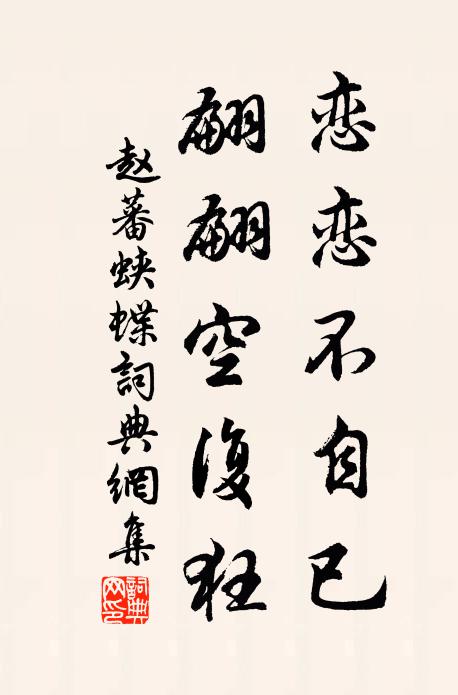 恋恋不自已
翩翩空復狂
赵蕃蛱蝶詞典網集
詞典网印